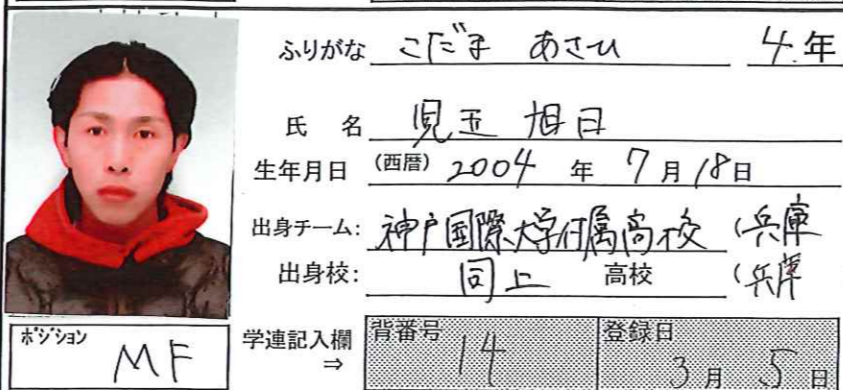 ふりがな こだま あさひ 4.年
氏 名 児玉 旭日
生年月日 (西暦) 2004 年 7月 18日
出身チーム: 神戸国際大学付属高校 (兵庫
出身校: 同上 高校 (兵庫
ポジション MF
学連記入欄 ⇒
背番号 14
登録日 3月 5日